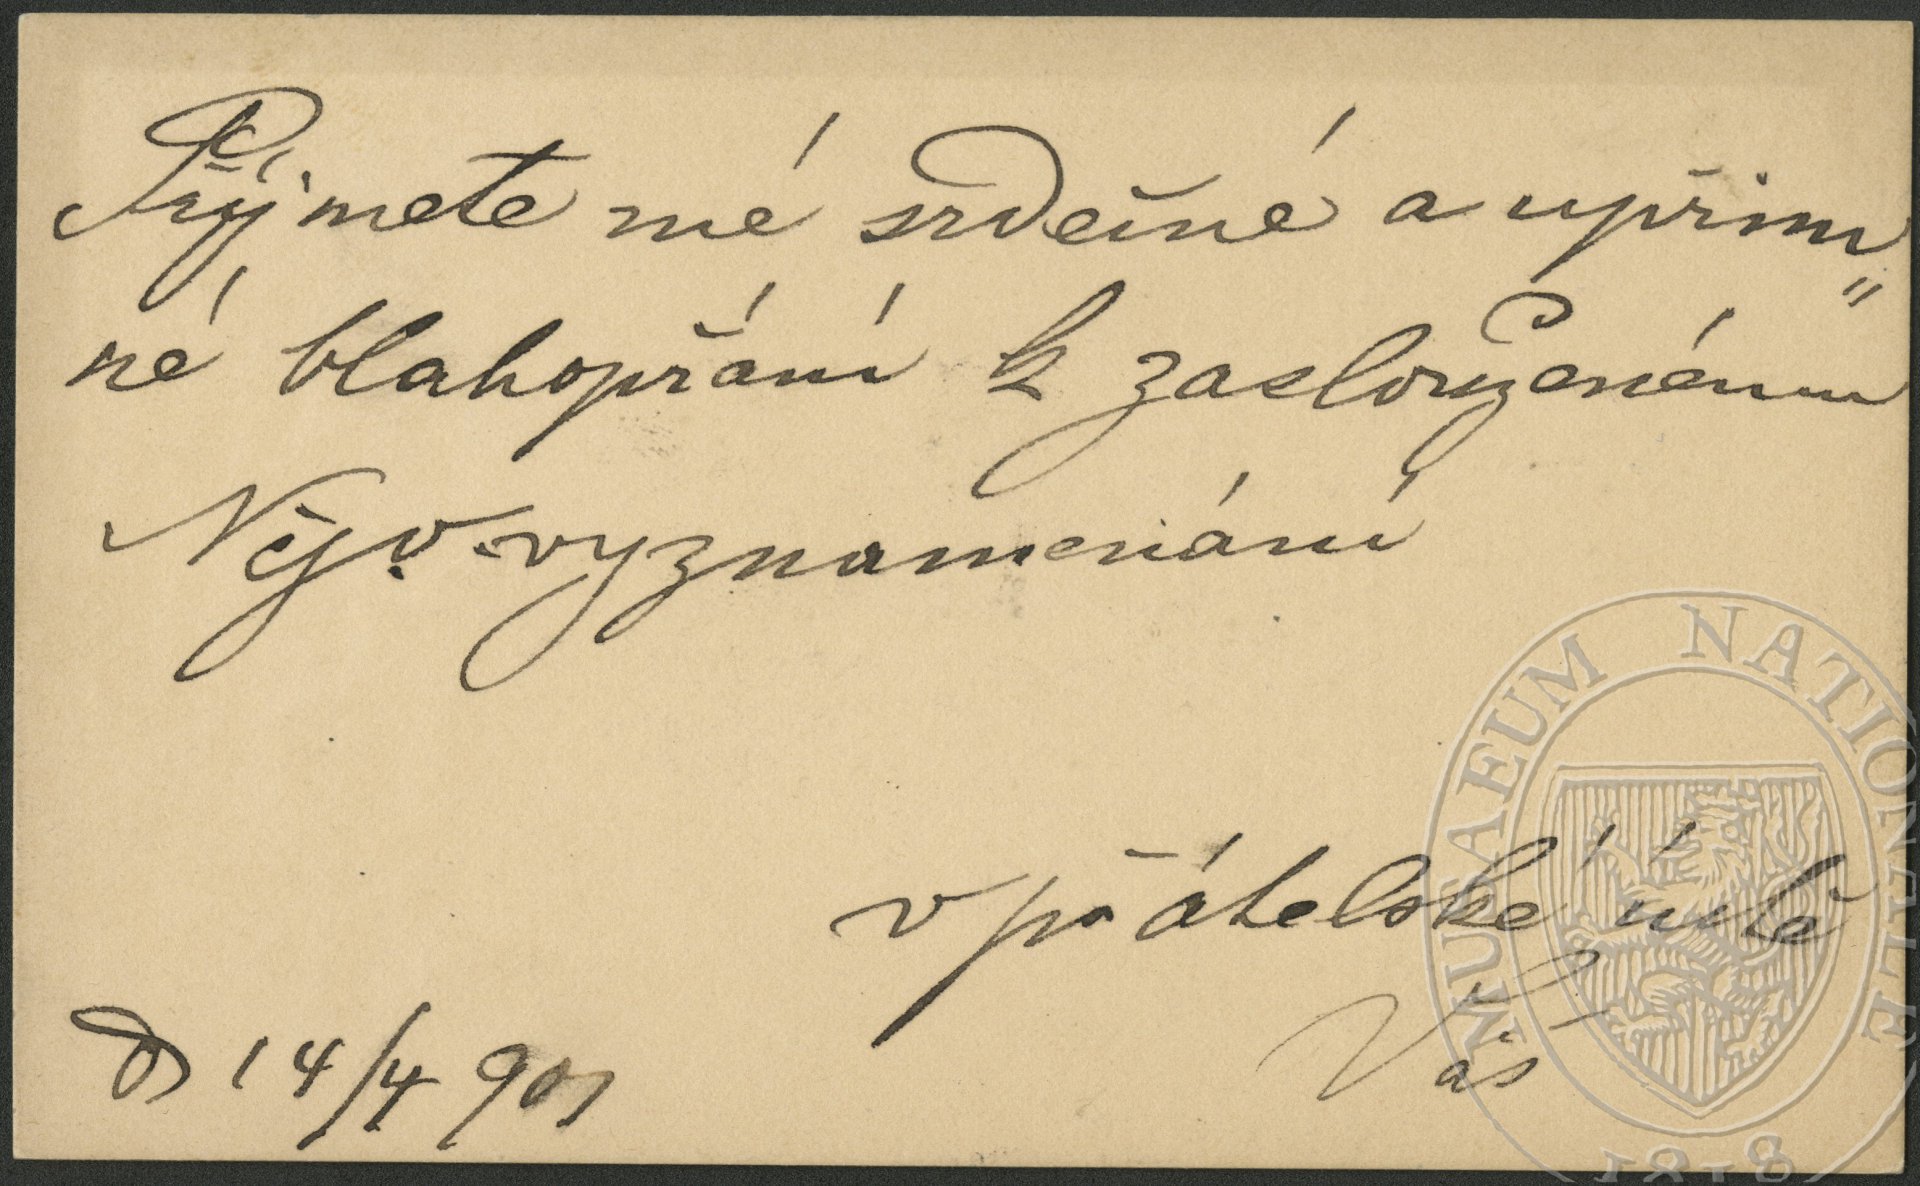 Přijmete mé srdečné a upřím„
né blahopřání k zaslouženému
Nejv. vyznamenání
v přátelské úctě
Váš
d 14/4 901
MUSAEUM NATIONALE
1818